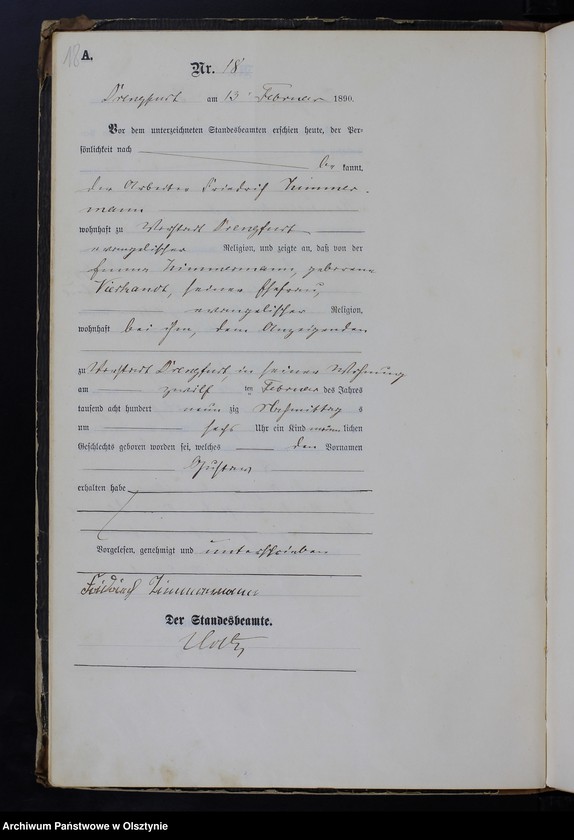 18 A.
Nr. 18
Drengfurt am 13 Februar 1890.
Vor dem unterzeichneten Standesbeamten erschien heute, der Per-
sönlichkeit nach
be kannt,
der Arbeiter Friedrich Zimmer-
mann
wohnhaft zu Vorstadt Drengfurt
evangelischer Religion, und zeigte an, daß von der
Zimmermann, geborene
seiner Ehefrau,
evangelischer Religion,
wohnhaft bei ihm, dem Anzeigenden
zu Vorstadt Drengfurt, in seiner Wohnung
am zwölf ten Februar des Jahres
tausend acht hundert neun zig Nachmittag s
um sechs Uhr ein Kind männ lichen
Geschlechts geboren worden sei, welches den Vornamen
Gustav
erhalten habe
Vorgelesen, genehmigt und unterschrieben
Friedrich Zimmermann
Der Standesbeamte.
Archiwum Państwowe w Olsztynie